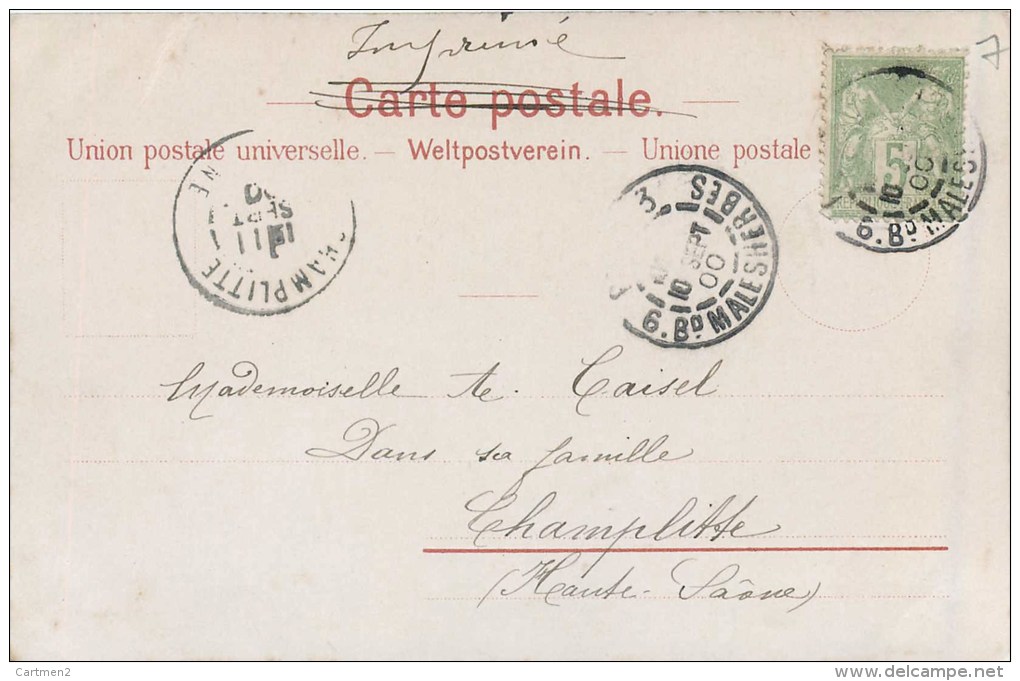 Imprimé
Carte postale.
Union postale universelle. — Weltpostverein. — Unione postale
5
6. Bd MALESHERBES
10 SEPT 00
6. Bd MALESH
10
00
CHAMPLITTE
11 SEPT 00
Mademoiselle
Dans sa famille
Champlitte
(Haute-Saône)
Cartmen2
www.delcampe.net